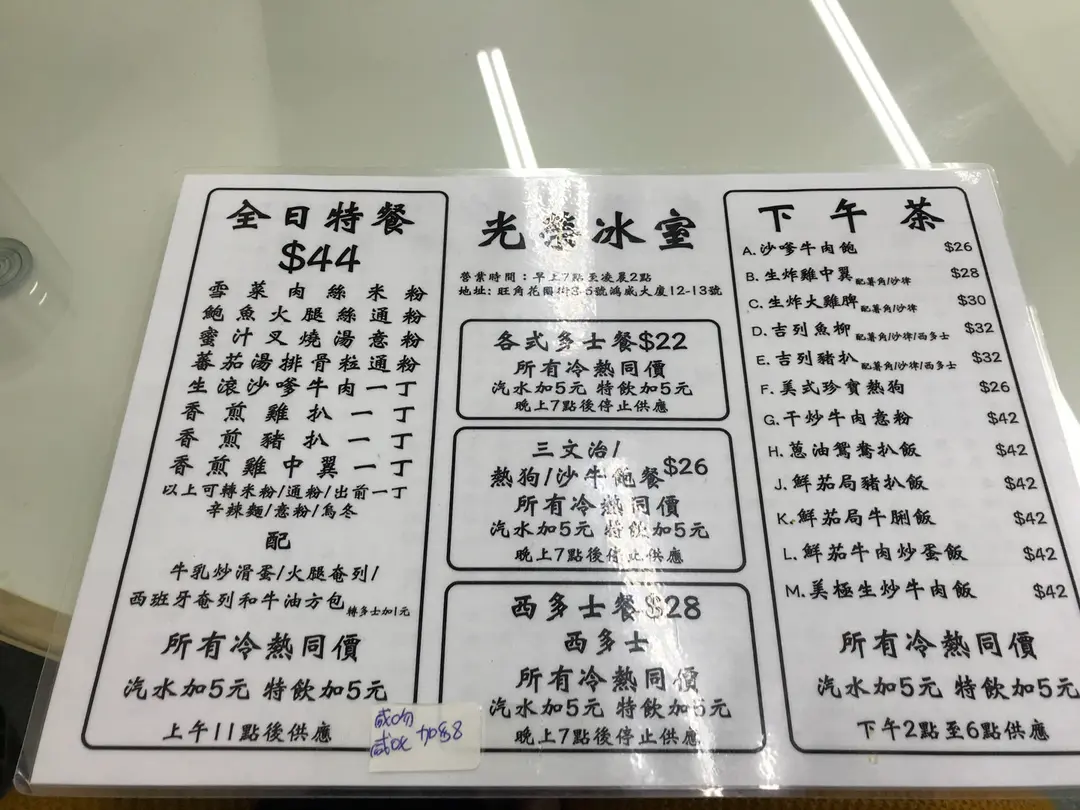 全日特餐
$44
雪菜肉絲米粉
鮑魚火腿絲通粉
蜜汁叉燒湯意粉
蕃茄湯排骨粒通粉
生滾沙嗲牛肉一丁
香煎雞扒一丁
香煎豬扒一丁
香煎雞中翼一丁
以上可轉米粉/通粉/出前一丁
辛辣麵/意粉/烏冬
配
牛乳炒滑蛋/火腿奄列/
西班牙奄列和牛油方包 轉多士加1元
所有冷熱同價
汽水加5元 特飲加5元
上午11點後供應
光榮冰室
營業時間：早上7點至凌晨2點
地址：旺角花園街3-5號鴻威大廈12-13號
各式多士餐$22
所有冷熱同價
汽水加5元 特飲加5元
晚上7點後停止供應
三文治/
熱狗/沙牛飽餐 $26
所有冷熱同價
汽水加5元 特飲加5元
晚上7點後停止供應
西多士餐$28
西多士
所有冷熱同價
汽水加5元 特飲加5元
晚上7點後停止供應
加$8
下午茶
A.沙嗲牛肉飽 $26
B.生炸雞中翼 配薯角/沙律 $28
C.生炸大雞髀 配薯角/沙律 $30
D.吉列魚柳 配薯角/沙律/西多士 $32
E.吉列豬扒 配薯角/沙律/西多士 $32
F.美式珍寶熱狗 $26
G.干炒牛肉意粉 $42
H.蔥油鴛鴦扒飯 $42
J.鮮茄局豬扒飯 $42
K.鮮茄局牛脷飯 $42
L.鮮茄牛肉炒蛋飯 $42
M.美極生炒牛肉飯 $42
所有冷熱同價
汽水加5元 特飲加5元
下午2點至6點供應